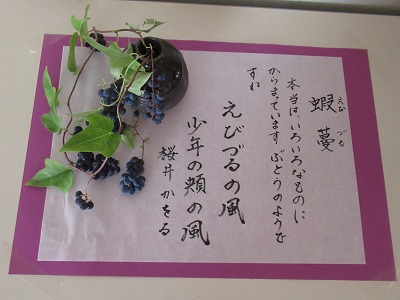 蝦蔓
えび づる
本当は、いろいろなものに
からまっています ぶどうのようで
すね
えびづるの風
少年の頰の風
桜井かをる